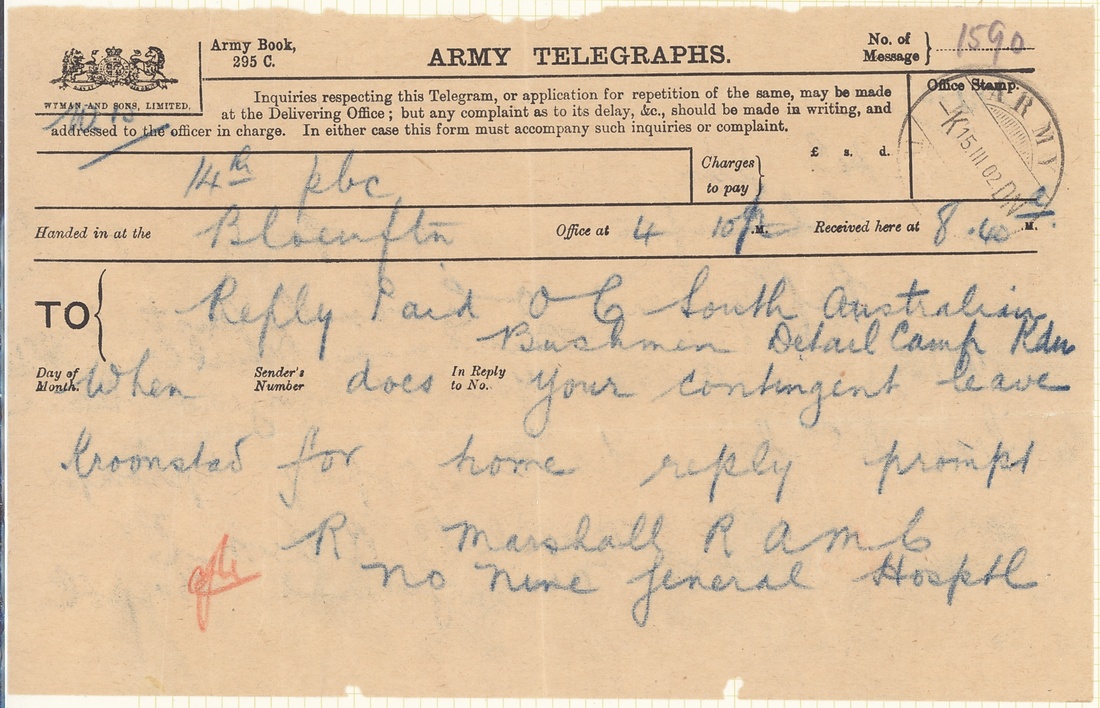 Army Book,
295 C.
ARMY TELEGRAPHS.
No. of
Message } 1590
WYMAN AND SONS, LIMITED.
Office Stamp.
Inquiries respecting this Telegram, or application for repetition of the same, may be made
at the Delivering Office; but any complaint as to its delay, &c., should be made in writing, and
addressed to the officer in charge. In either case this form must accompany such inquiries or complaint.
ARMY
15.III.02
14th pbc
Charges
to pay
£ s. d.
Handed in at the Bloemftn Office at 4 10 p M. Received here at 8.40 a M.
TO Reply Paid O C South Australian
Bushmen Detail Camp Kdn
Day of
Month.
Sender's
Number
In Reply
to No.
When does your contingent leave
Kroonstad for home reply prompt
R Marshall R A M C
No nine General Hosptl